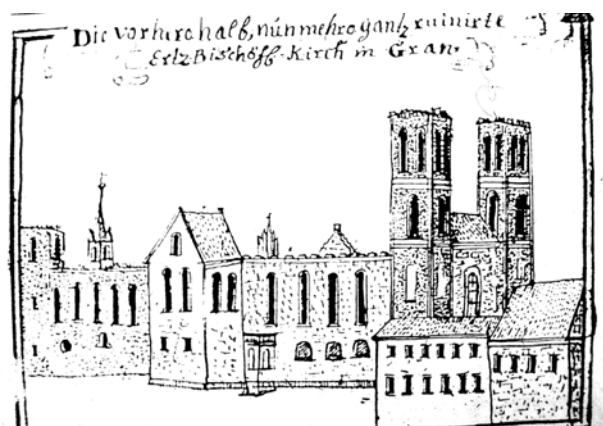 Die vorhero halb, nunmehro gantz ruinirte
Ertz-Bischöff-Kirch in Gran.